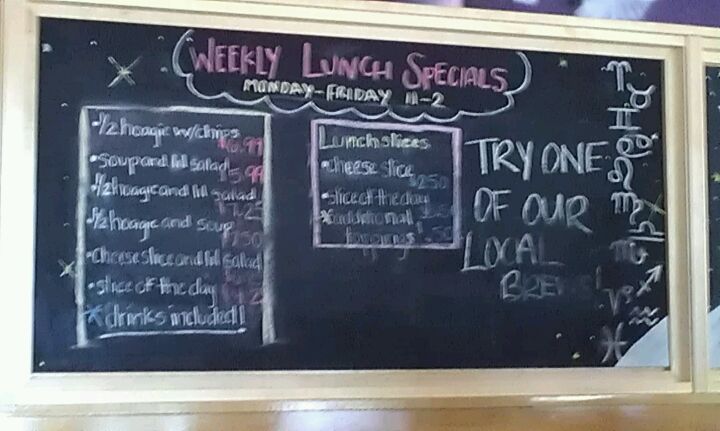 WEEKLY LUNCH SPECIALS
MONDAY-FRIDAY 11-2
•1/2 hoagie w/chips
$6.99
•soup and lil salad
5.99
•1/2 hoagie and lil salad
7.25
•1/2 hoagie and soup
7.50
•cheese slice and lil salad
•slice of the day
*drinks included!
Lunch slices
•cheese slice
$2.50
•slice of the day
*additional
toppings .50
TRY ONE
OF OUR
LOCAL
BREWS!
♈ ♉
♊ ♋
♌
♍ ♎
♏
♐
♑ ♒
♓